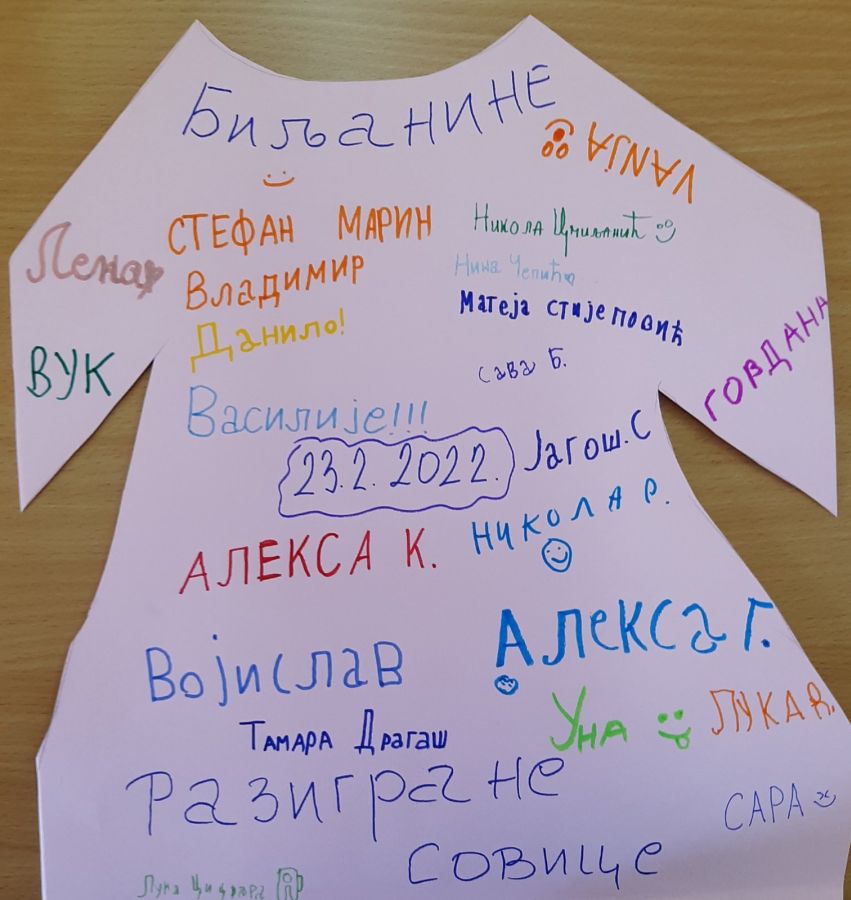 Биљанине
ВАЊА
СТЕФАН МАРИН
Никола Цмиљанић
Лена
Владимир
Нина Чепић
Матеја Стијеповић
Данило!
ГОРДАНА
ВУК
Сава Б.
Василије!!!
Јагош.С
23.2.2022.
НИКОЛА Р.
АЛЕКСА К.
Алекса Г.
Војислав
Уна
ЛУКА В.
Тамара Драгаш
Разигране
САРА
совице
Лука